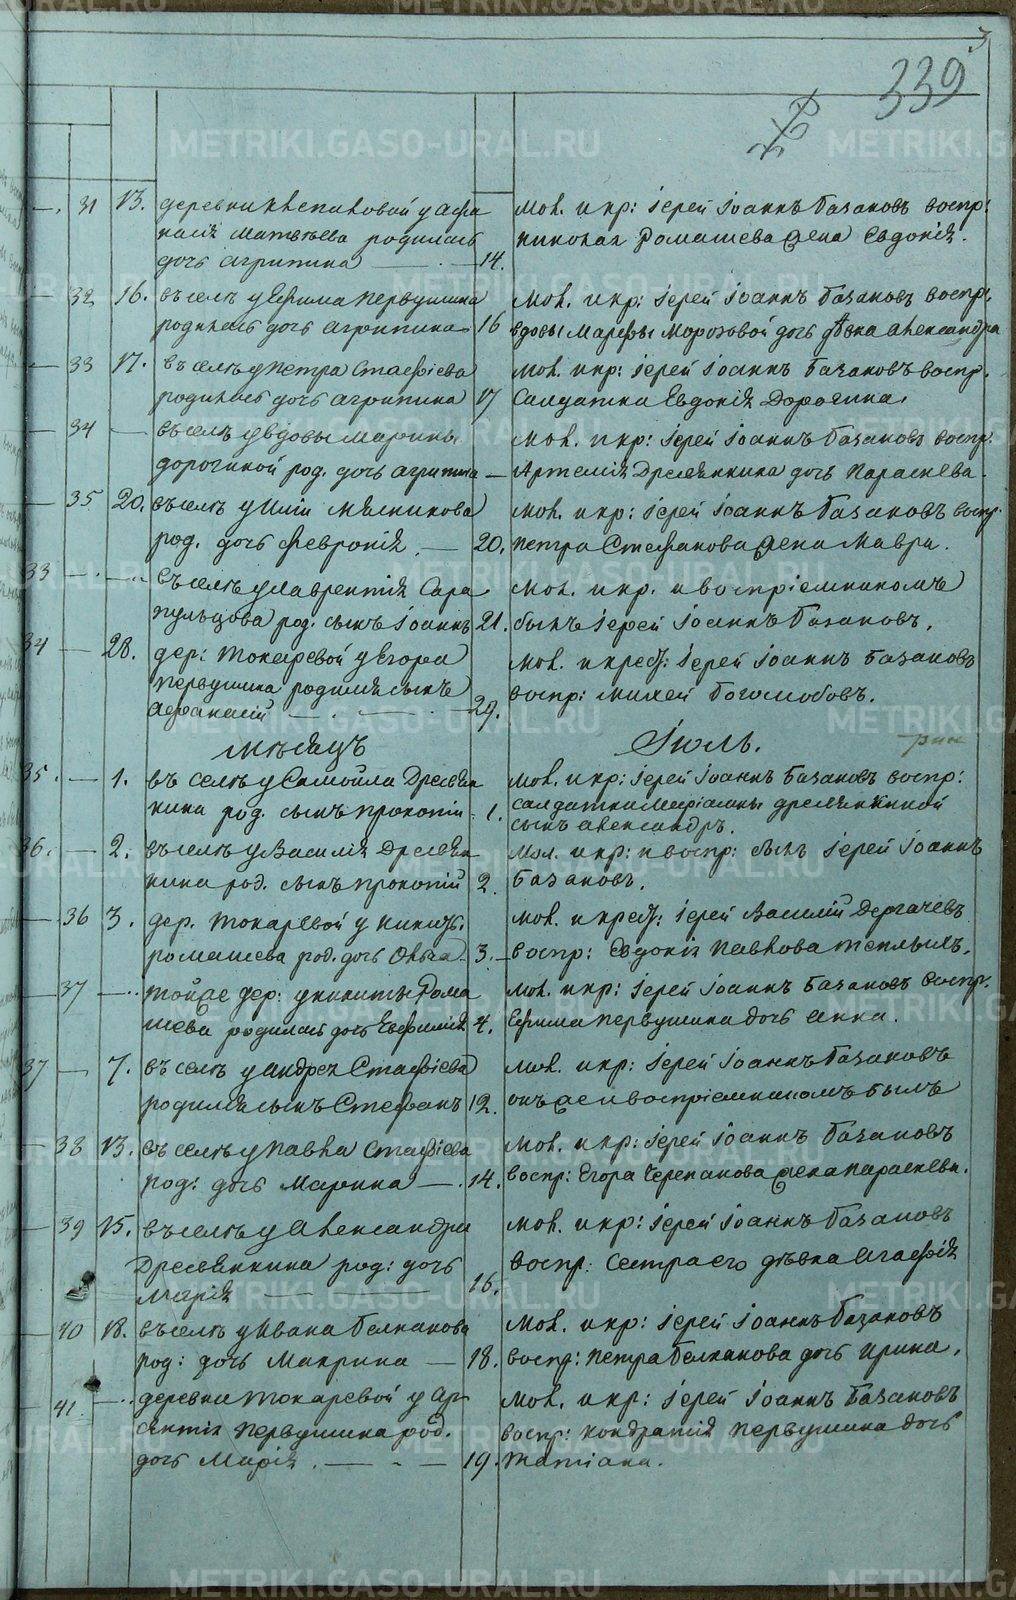 3
339
—. 31 13. деревни Клепиковой у Афа
насія Матвѣева родилась
дочь Агрипина — . — 14.
мол. и кр: іерей Іоаннъ Базановъ воспр:
Николая Ромашева жена Евдокія.
— 32 16. въ селѣ у Ефима Первушина
родилась дочь Агрипина 16
мол. и кр: іерей Іоаннъ Базановъ воспр.
вдовы Марфы Морозовой дочь дѣвка Александра
— 33 17. въ селѣ у Петра Стафіева
родилась дочь Агрипина 17
мол. и кр: іерей Іоаннъ Базановъ воспр.
Салдатка Евдокія Дорогина.
— 34 — въ селѣ у вдовы Марины
Дорогиной род. дочь Агрипина —
мол. и кр: іерей Іоаннъ Базановъ воспр:
Артемія Дресвянкина дочь Параскева.
— 35 20. въ селѣ у Иліи Мясникова
род. дочь Февронія. — 20.
мол. и кр: іерей Іоаннъ Базановъ воспр.
Петра Стефанова жена Мавра.
33 — . — .. въ селѣ у Лаврентія Сара
пульцова род. сынъ Іоаннъ 21.
мол. и кр. и воспріемникомъ
былъ іерей Іоаннъ Базановъ.
34 — 28. дер: Токаревой у Егора
Первушина родился сынъ
Афанасій — . — 29.
мол. и крест: іерей Іоаннъ Базановъ
воспр: Михей Боголюбовъ.
Мѣсяцъ Іюль.
35. — 1. въ селѣ у Самойла Дресвян
кина род. сынъ Прокопій. 1.
мол. и кр: іерей Іоаннъ Базановъ воспр:
салдатки Маріамны Дресвянкиной
сынъ Александръ.
36. — 2. въ селѣ у Василія Дресвян
кина род. сынъ Прокопій 2.
мол. и кр: и воспр: былъ іерей Іоаннъ
Базановъ.
— 36 3. дер. Токаревой у Никиты
Ромашева род. дочь Ольга 3.
мол. и крест: іерей Василій Дергачевъ
воспр: Евдокія Павлова Теплыхъ.
— 37 — .. Тойже дер: у Никиты Рома
шева родилась дочь Евфимія 4.
мол. и кр: іерей Іоаннъ Базановъ воспр.
Ефима Первушина дочь Анна.
37 — 7. въ селѣ у Андрея Стафіева
родился сынъ Стефанъ 12.
мол. и кр: іерей Іоаннъ Базановъ
онъ же и воспріемникомъ былъ
— 38 13. въ селѣ у Павла Стафіева
род: дочь Марина — . 14.
мол. и кр: іерей Іоаннъ Базановъ
воспр: Егора Черепанова жена Параскева.
— 39 15. въ селѣ у Александра
Дресвянкина род: дочь
Марія — — 16.
мол. и кр: іерей Іоаннъ Базановъ
воспр: сестра его дѣвка Агафія
— 40 18. въ селѣ у Ивана Белканова
род: дочь Макрина — 18.
мол. и кр: іерей Іоаннъ Базановъ
воспр: Петра Белканова дочь Ирина.
— 41 — .. деревни Токаревой у Ар
сентія Первушина род.
дочь Марія. — - — 19.
мол. и кр: іерей Іоаннъ Базановъ
воспр: Кондратія Первушина дочь
Татіана.
METRIKI.GASO-URAL.RU